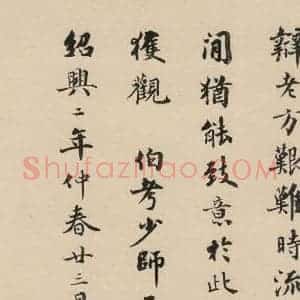 辯老方艱難時流
閒猶能致意於此
獲觀　伯考少師
紹興二年仲春廿三日
ShufaziliaO.COM